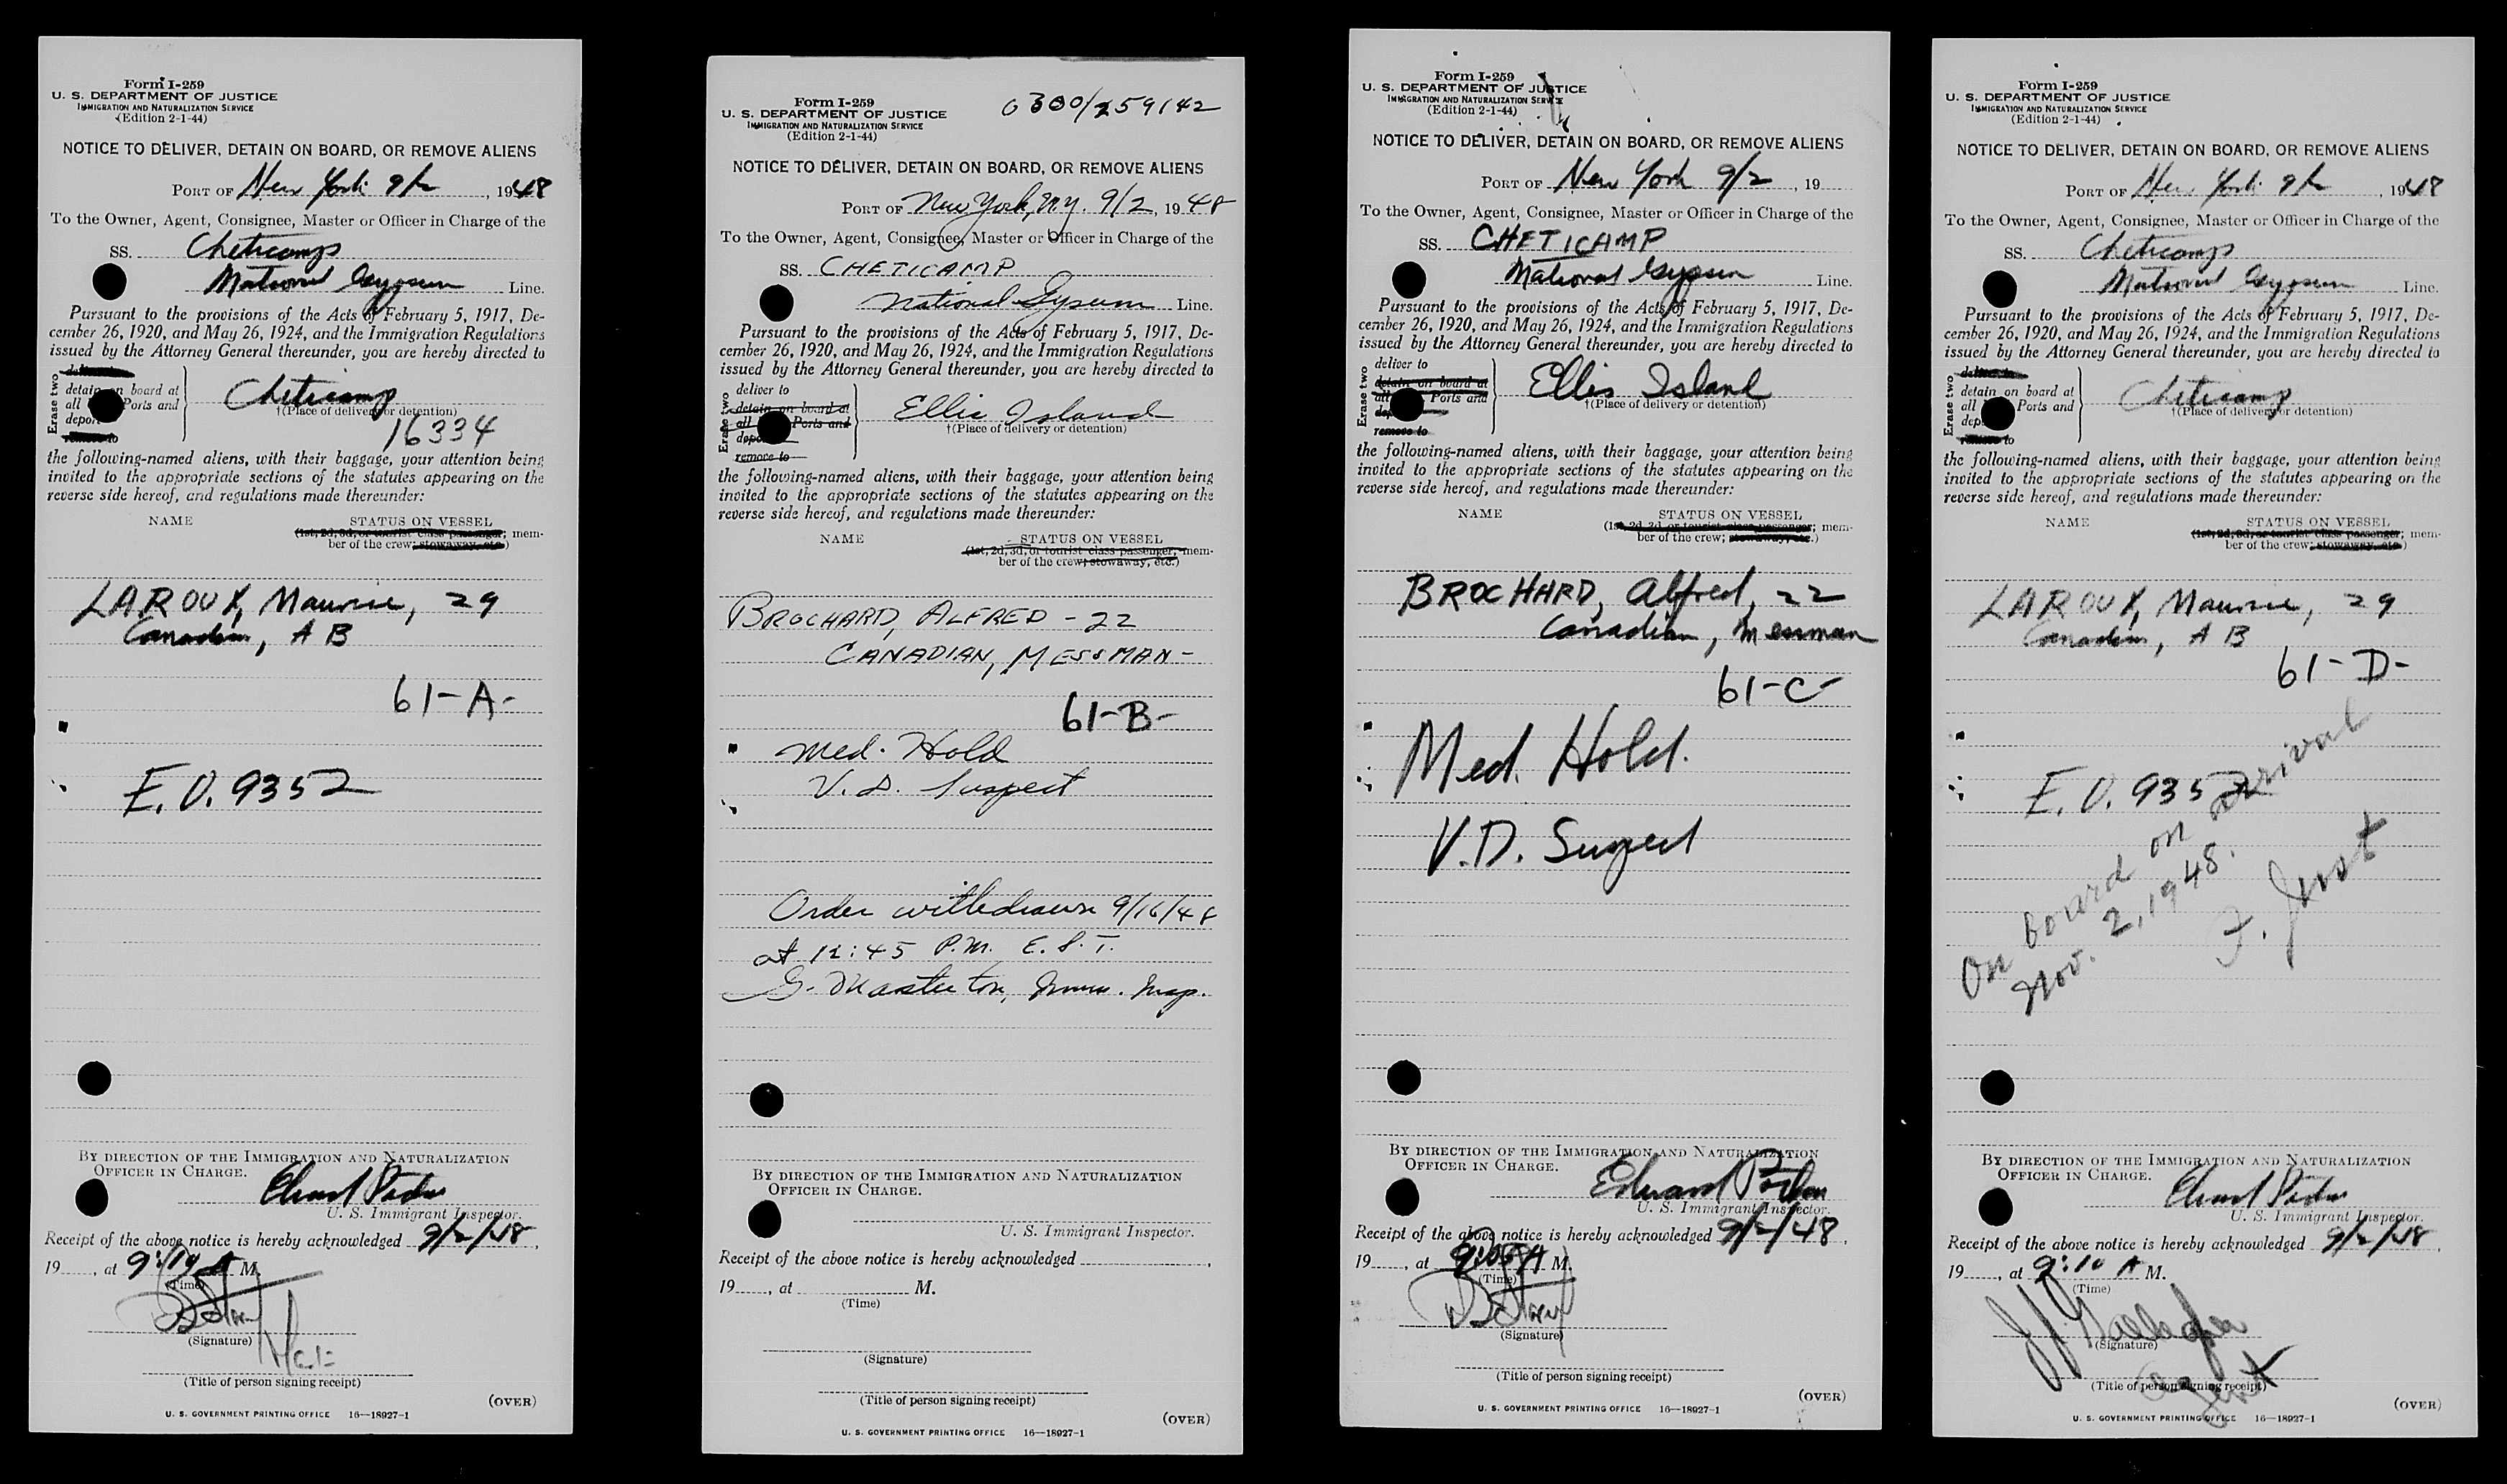 Form I-259
U. S. DEPARTMENT OF JUSTICE
IMMIGRATION AND NATURALIZATION SERVICE
(Edition 2-1-44)
NOTICE TO DELIVER, DETAIN ON BOARD, OR REMOVE ALIENS
PORT OF New York 9/2, 1948
To the Owner, Agent, Consignee, Master or Officer in Charge of the
SS. Cheticamp
National Gypsum Line.
Pursuant to the provisions of the Acts of February 5, 1917, De-
cember 26, 1920, and May 26, 1924, and the Immigration Regulations
issued by the Attorney General thereunder, you are hereby directed to
Erase two
detain on board at
all Ports and
deport
remove to
Cheticamp
†(Place of delivery or detention)
16334
the following-named aliens, with their baggage, your attention being
invited to the appropriate sections of the statutes appearing on the
reverse side hereof, and regulations made thereunder:
NAME STATUS ON VESSEL
(1st, 2d, 3d, or tourist class passenger; mem-
ber of the crew; stowaway, etc.)
LAROUX, Maurice, 29
Canadian, A B
61-A-
E.O. 9352
BY DIRECTION OF THE IMMIGRATION AND NATURALIZATION
OFFICER IN CHARGE.
U. S. Immigrant Inspector.
Receipt of the above notice is hereby acknowledged 9/2/48,
19, at 9:10 A M.
(Time)
(Signature)
(Title of person signing receipt)
(OVER)
U. S. GOVERNMENT PRINTING OFFICE 16—18927-1
Form I-259
U. S. DEPARTMENT OF JUSTICE
IMMIGRATION AND NATURALIZATION SERVICE
(Edition 2-1-44)
0300/259142
NOTICE TO DELIVER, DETAIN ON BOARD, OR REMOVE ALIENS
PORT OF New York, N.Y. 9/2, 1948
To the Owner, Agent, Consignee, Master or Officer in Charge of the
SS. CHETICAMP
National Gypsum Line.
Pursuant to the provisions of the Acts of February 5, 1917, De-
cember 26, 1920, and May 26, 1924, and the Immigration Regulations
issued by the Attorney General thereunder, you are hereby directed to
Erase two
deliver to
detain on board at
all Ports and
remove to
Ellis Island
†(Place of delivery or detention)
the following-named aliens, with their baggage, your attention being
invited to the appropriate sections of the statutes appearing on the
reverse side hereof, and regulations made thereunder:
NAME STATUS ON VESSEL
(1st, 2d, 3d, or tourist class passenger; mem-
ber of the crew; stowaway, etc.)
BROCHARD, ALFRED - 22
CANADIAN, MESSMAN-
61-B-
Med. Hold
V.D. Suspect
Order withdrawn 9/16/48
at 12:45 P.M. E.S.T.
G. Masterton, Imm. Insp.
BY DIRECTION OF THE IMMIGRATION AND NATURALIZATION
OFFICER IN CHARGE.
U. S. Immigrant Inspector.
Receipt of the above notice is hereby acknowledged
19, at M.
(Time)
(Signature)
(Title of person signing receipt)
(OVER)
U. S. GOVERNMENT PRINTING OFFICE 16—18927-1
Form I-259
U. S. DEPARTMENT OF JUSTICE
IMMIGRATION AND NATURALIZATION SERVICE
(Edition 2-1-44)
NOTICE TO DELIVER, DETAIN ON BOARD, OR REMOVE ALIENS
PORT OF New York 9/2, 19
To the Owner, Agent, Consignee, Master or Officer in Charge of the
SS. CHETICAMP
National Gypsum Line.
Pursuant to the provisions of the Acts of February 5, 1917, De-
cember 26, 1920, and May 26, 1924, and the Immigration Regulations
issued by the Attorney General thereunder, you are hereby directed to
Erase two
deliver to
detain on board at
all Ports and
remove to
Ellis Island
†(Place of delivery or detention)
the following-named aliens, with their baggage, your attention being
invited to the appropriate sections of the statutes appearing on the
reverse side hereof, and regulations made thereunder:
NAME STATUS ON VESSEL
(1st, 2d, 3d, or tourist class passenger; mem-
ber of the crew; stowaway, etc.)
BROCHARD, Alfred, 22
Canadian, Messman
61-C-
Med. Hold.
V.D. Suspect
BY DIRECTION OF THE IMMIGRATION AND NATURALIZATION
OFFICER IN CHARGE.
Edward
U. S. Immigrant Inspector.
Receipt of the above notice is hereby acknowledged 9/2/48,
19, at 9:05 A M.
(Time)
(Signature)
(Title of person signing receipt)
(OVER)
U. S. GOVERNMENT PRINTING OFFICE 16—18927-1
Form I-259
U. S. DEPARTMENT OF JUSTICE
IMMIGRATION AND NATURALIZATION SERVICE
(Edition 2-1-44)
NOTICE TO DELIVER, DETAIN ON BOARD, OR REMOVE ALIENS
PORT OF New York 9/2, 1948
To the Owner, Agent, Consignee, Master or Officer in Charge of the
SS. Cheticamp
National Gypsum Line.
Pursuant to the provisions of the Acts of February 5, 1917, De-
cember 26, 1920, and May 26, 1924, and the Immigration Regulations
issued by the Attorney General thereunder, you are hereby directed to
Erase two
detain on board at
all Ports and
remove to
Cheticamp
†(Place of delivery or detention)
the following-named aliens, with their baggage, your attention being
invited to the appropriate sections of the statutes appearing on the
reverse side hereof, and regulations made thereunder:
NAME STATUS ON VESSEL
(1st, 2d, 3d, or tourist class passenger; mem-
ber of the crew; stowaway, etc.)
LAROUX, Maurice, 29
Canadian, A B
61-D-
E.O. 9352
On board on arrival
Nov. 2, 1948.
BY DIRECTION OF THE IMMIGRATION AND NATURALIZATION
OFFICER IN CHARGE.
U. S. Immigrant Inspector.
Receipt of the above notice is hereby acknowledged 9/2/48,
19, at 9:10 A M.
(Time)
Gallagher
(Signature)
Agent
(Title of person signing receipt)
(OVER)
U. S. GOVERNMENT PRINTING OFFICE 16—18927-1